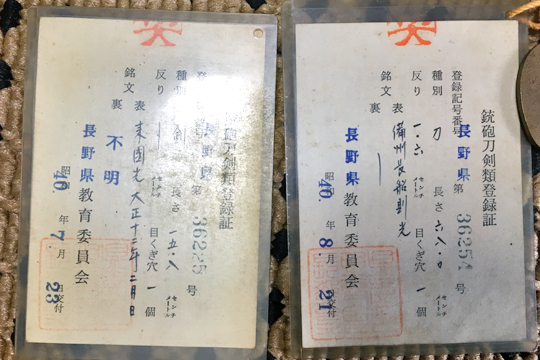 銃砲刀剣類登録証
登録記号番号 長野県 第 号
種別 刀 長さ 六八・〇 センチメートル
反り 一・六 センチメートル 目くぎ穴 一個
銘文 表 備州長船則光
裏
長野県教育委員会
昭和40.年8.月21日交付
銃砲刀剣類登録証
長野県 第 号
種 長さ 一五・八 センチメートル
反り センチメートル 目くぎ穴 一個
銘文 表 来国光 大正十二年二月日
裏 不明
長野県教育委員会
昭和40年7.月23日交付